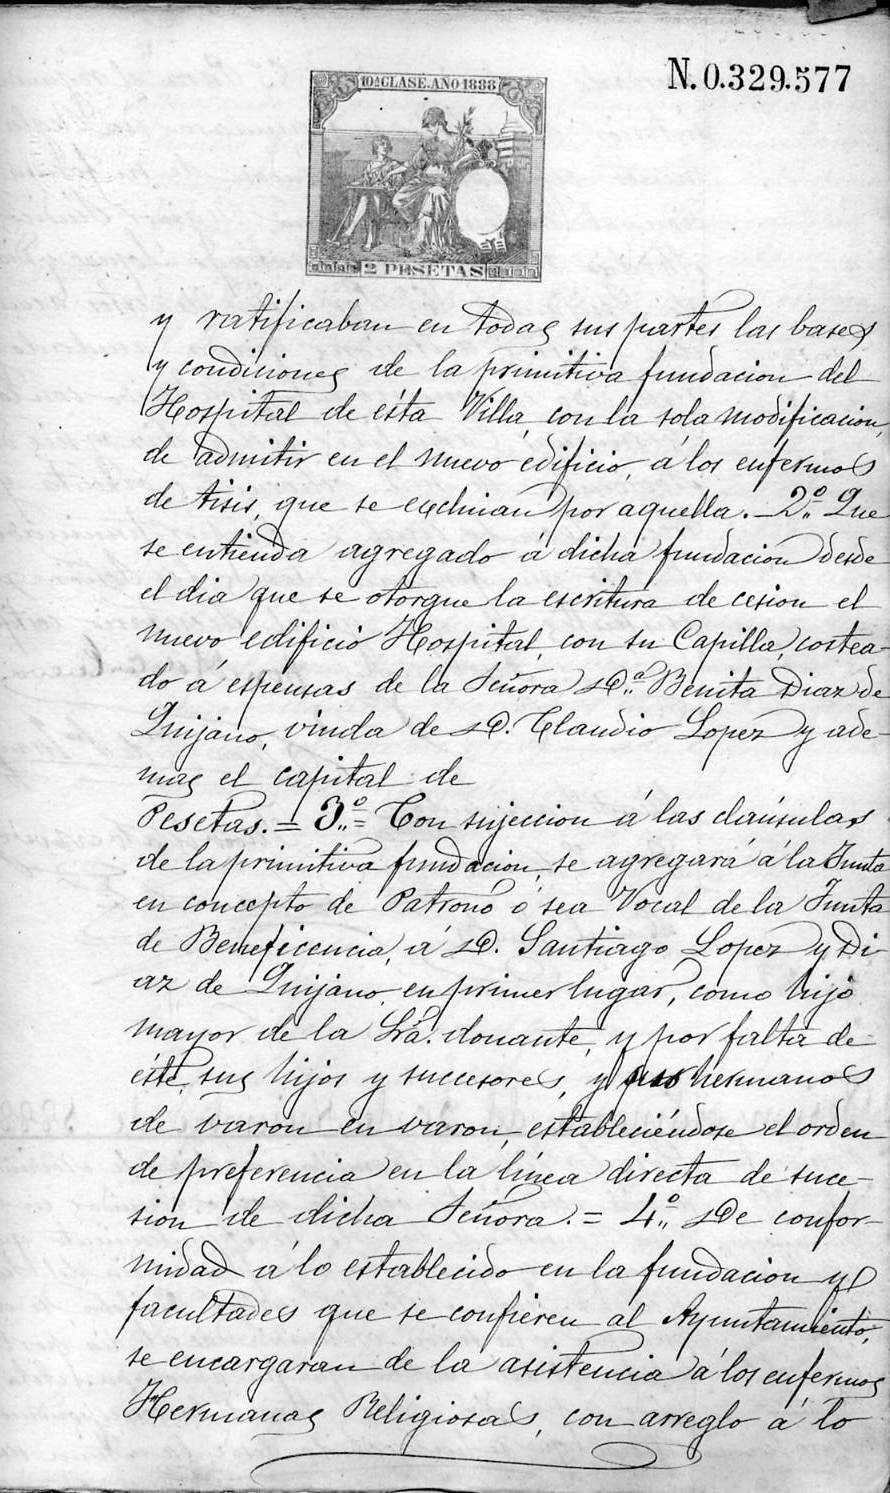 N. 0.329.577
10ª CLASE. AÑO 1888
2 PESETAS
y ratificaban en todas sus partes las bases
y condiciones de la primitiva fundacion del
Hospital de ésta Villa, con la sola modificacion,
de admitir en el nuevo edificio, á los enfermos
de tisis, que se excluian por aquella. — 2.º Que
se entienda agregado á dicha fundacion desde
el dia que se otorgue la escritura de cesion el
nuevo edificio Hospital, con su Capilla, costea-
do á espensas de la Señora D.ª Benita Diaz de
Quijano, viuda de D. Claudio Lopez y ade-
mas el capital de
Pesetas. = 3.º = Con sujeccion á las claúsulas
de la primitiva fundacion, se agregará á la Junta
en concepto de Patrono ó sea Vocal de la Junta
de Beneficencia, á D. Santiago Lopez y Di-
az de Quijano, en primer lugar, como hijo
mayor de la Srâ. donante, y por falta de
éste, sus hijos y succesores, y sus hermanos
de varon en varon, estableciéndose el orden
de preferencia en la línea directa de suce-
sion de dicha Señora. = 4.º De confor-
midad á lo establecido en la fundacion y
facultades que se confieren al Ayuntamiento,
se encargaran de la asistencia á los enfermos
Hermanas Religiosas, con arreglo á lo